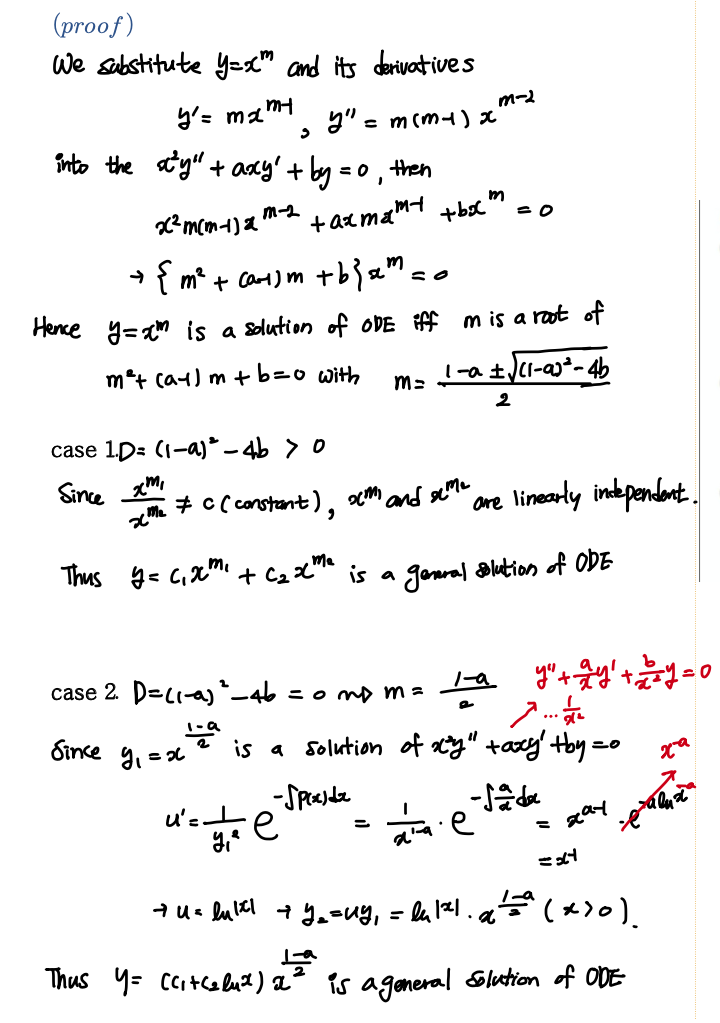 (proof)
We substitute y=x^m and its derivatives
y' = mx^{m-1}, y'' = m(m-1) x^{m-2}
into the x²y'' + axy' + by = 0, then
x² m(m-1) x^{m-2} + ax mx^{m-1} + bx^m = 0
→ { m² + (a-1) m + b } x^m = 0
Hence y=x^m is a solution of ODE iff m is a root of
m² + (a-1) m + b = 0 with m = \frac{1-a ± \sqrt{(1-a)² - 4b}}{2}
case 1. D= (1-a)² - 4b > 0
Since \frac{x^{m_1}}{x^{m_2}} ≠ c (constant), x^{m_1} and x^{m_2} are linearly independent.
Thus y = c_1 x^{m_1} + c_2 x^{m_2} is a general solution of ODE
y'' + \frac{a}{x} y' + \frac{b}{x²} y = 0
case 2. D=(1-a)² - 4b = 0 ⇝ m = \frac{1-a}{2}
↗ ... \frac{1}{x²}
Since y_1 = x^{\frac{1-a}{2}} is a solution of x²y'' + axy' + by = 0
x^{-a}
u' = \frac{1}{y_1²} e^{-∫p(x)dx} = \frac{1}{x^{1-a}} · e^{-∫\frac{a}{x}dx} = x^{a-1} · e^{-a ln x^{-a}}
= x^{-1}
→ u = ln|x| → y_2 = uy_1 = ln|x| · x^{\frac{1-a}{2}} (x>0).
Thus y = (c_1 + c_2 ln x) x^{\frac{1-a}{2}} is a general solution of ODE